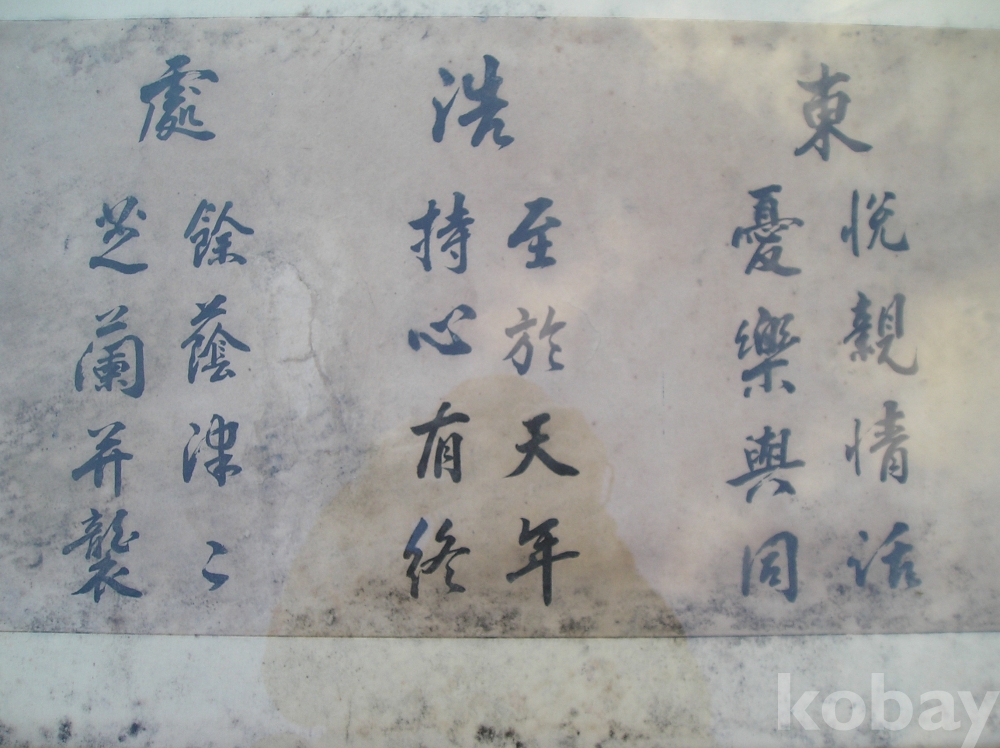 東
悅親情話
憂樂與同
浩
至於天年
持心有終
處
餘蔭津〻
芝蘭并襲
kobay